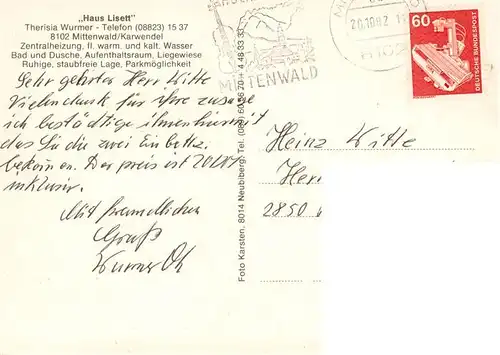 „Haus Lisett"
Therisia Wurmer - Telefon (08823) 15 37
8102 Mittenwald/Karwendel
Zentralheizung, II. warm. und kalt. Wasser
Bad und Dusche, Aufenthaltsraum, Liegewiese
Ruhige, staubfreie Lage, Parkmöglichkeit
Sehr geehrter Herr Witte
Vielendank für ihre zusage
ich bestädtige ihnen hiermit
das Sie die zwei Einbettz.
bekommen. Der preis ist 20
inklusiv.
Mit freundlichen
Gruß
Wurmer
Foto Karsten, 8014 Neubiberg, Tel.
MITTENWALD
20.10.82
8102
60
DEUTSCHE BUNDESPOST
Heinz Witte
Herr
2850